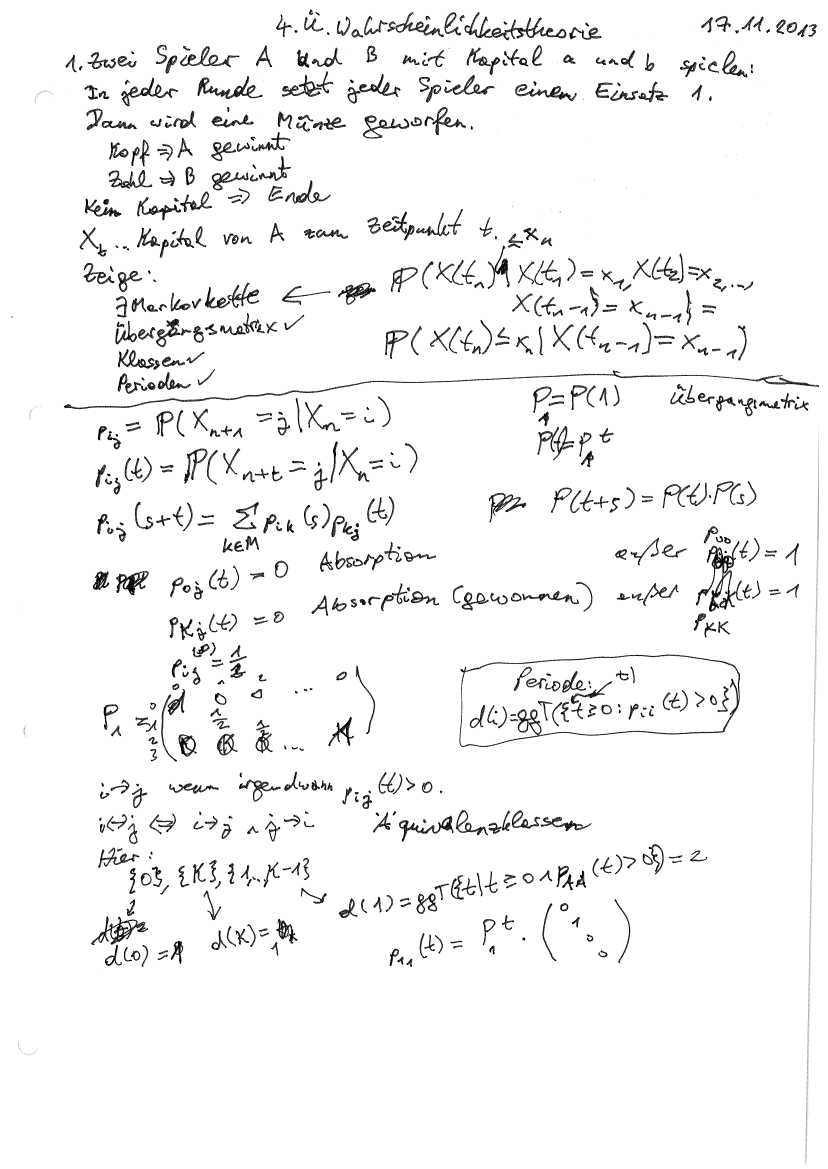 4. Ü. Wahrscheinlichkeitstheorie 17.11.2013
1. Zwei Spieler A und B mit Kapital a und b spielen:
In jeder Runde setzt jeder Spieler einen Einsatz 1.
Dann wird eine Münze geworfen.
Kopf ⇒ A gewinnt
Zahl ⇒ B gewinnt
Kein Kapital ⇒ Ende
X_t ... Kapital von A zum Zeitpunkt t.
Zeige:
∃ Markovkette ← ℙ(X(t_n) ≤ x_n | X(t_1) = x_1, X(t_2) = x_2, ...,
X(t_{n-1}) = x_{n-1}} =
Übergangsmatrix ✓ ℙ(X(t_n) ≤ x_n | X(t_{n-1}) = x_{n-1})
Klassen ✓
Perioden ✓
p_{ij} = ℙ(X_{n+1} = j | X_n = i) P_1 = P(1) Übergangsmatrix
p_{ij}(t) = ℙ(X_{n+t} = j | X_n = i) P(t) = P_1^t
p_{ij}(s+t) = Σ_{k∈M} p_{ik}(s) p_{kj}(t) P(t+s) = P(t)·P(s)
p_{0j}(t) = 0 Absorption außer p_{00}(t) = 1
p_{Kj}(t) = 0 Absorption (gewonnen) außer p_{KK}(t) = 1
Periode: t)
d(i) = ggT({t ≥ 0 : p_{ii}(t) > 0})
i → j wenn irgendwann p_{ij}(t) > 0.
i ↔ j ⇔ i → j ∧ j → i Äquivalenzklassen
Hier:
{0}, {K}, {1,..,K-1}
d(0) = 1 d(K) = 1 d(1) = ggT({t | t ≥ 0 ∧ p_{11}(t) > 0}) = 2
p_{11}(t) = P_1^t · (0 1 0 0)